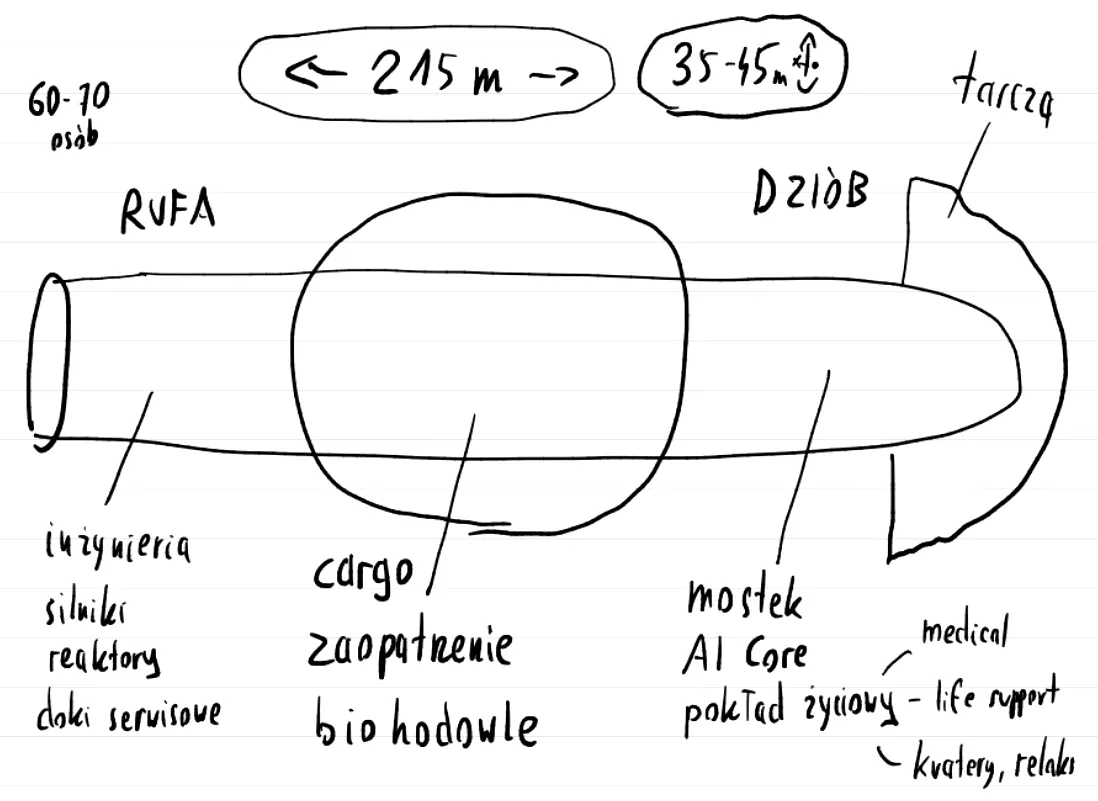 ← 215 m →
35-45m
60-70
osób
tarczą
RUFA
DZIÓB
inżynieria
silniki
reaktory
doki serwisowe
cargo
zaopatrzenie
bio hodowle
mostek
AI Core
pokład życiowy
medical
- life support
kwatery, relaks